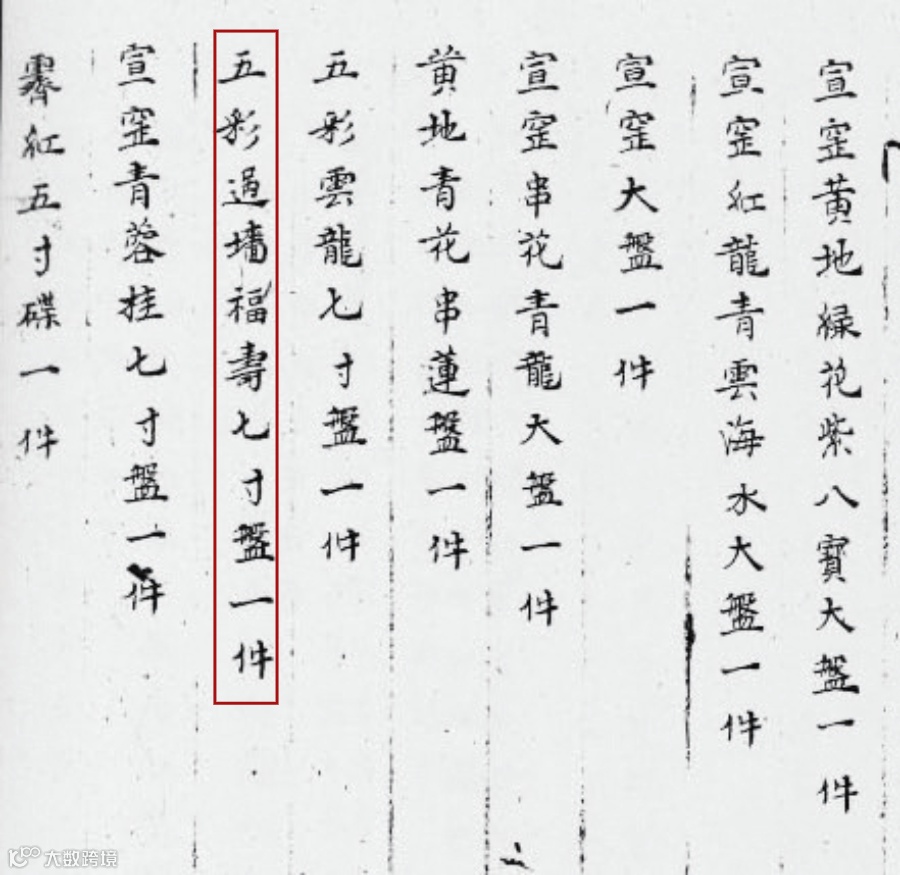 宣窑黄地緑花紫八寶大盤一件
宣窑紅龍青雲海水大盤一件
宣窑大盤一件
宣窑串花青龍大盤一件
黄地青花串蓮盤一件
五彩雲龍七寸盤一件
五彩過墻福壽七寸盤一件
宣窑青蓉桂七寸盤一件
霽紅五寸碟一件
大数跨境